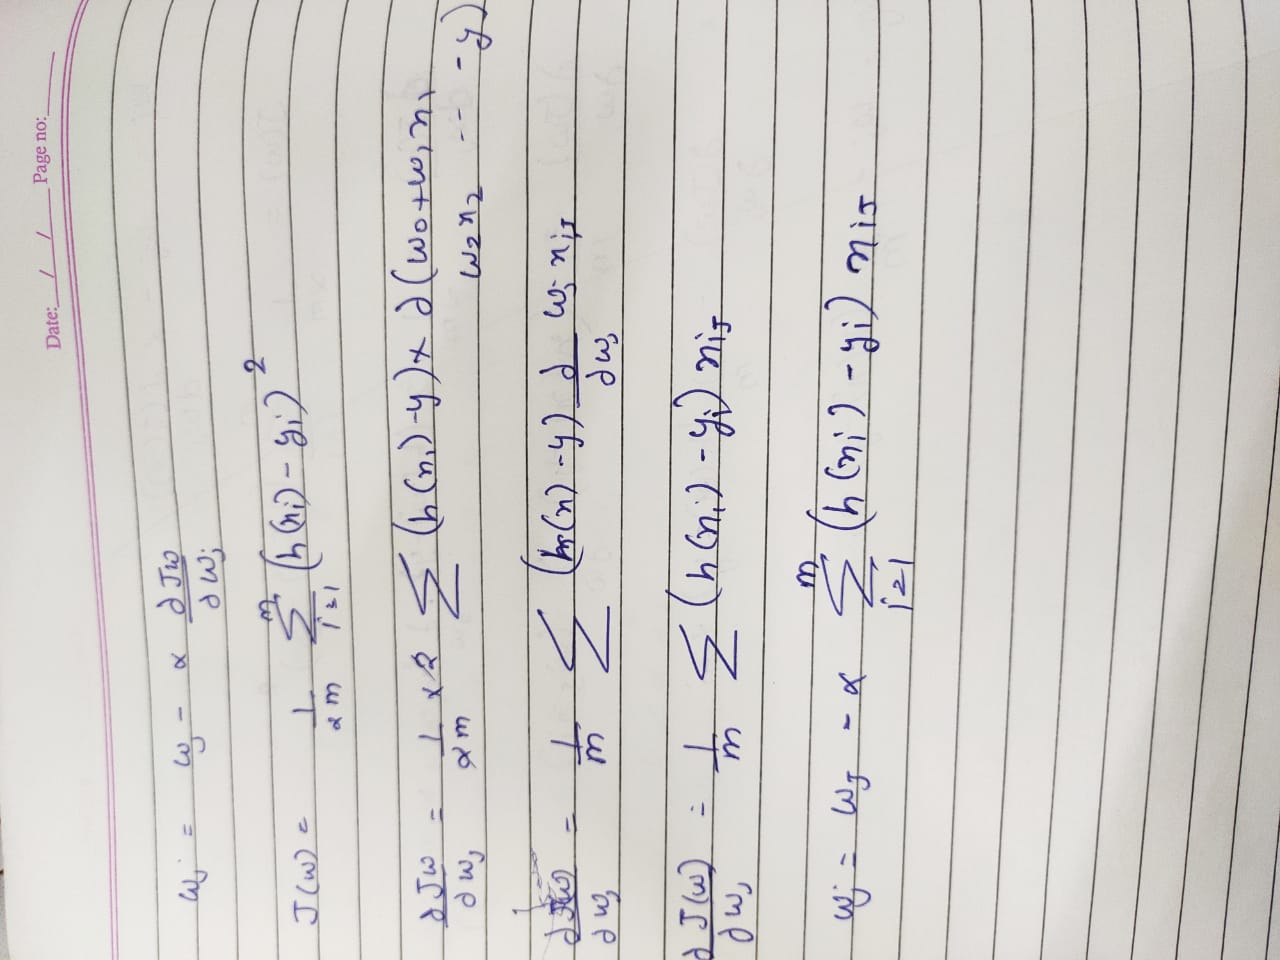 Date: / / Page no:
wj = wj - α ∂Jw/∂wj
J(w) = 1/2m m∑i=1 (h(xi) - yi)²
∂Jw/∂wj = 1/2m × 2 ∑ (h(xi) - y) × ∂(w0 + w1x1
w2x2 -- - -y)
∂Jw/∂wj = 1/m ∑ (h(x) - y) ∂/∂wj wj xij
∂J(w)/∂wj = 1/m ∑ (h(xi) - yi) xij
wj = wj - α m∑i=1 (h(xi) - yi) xij